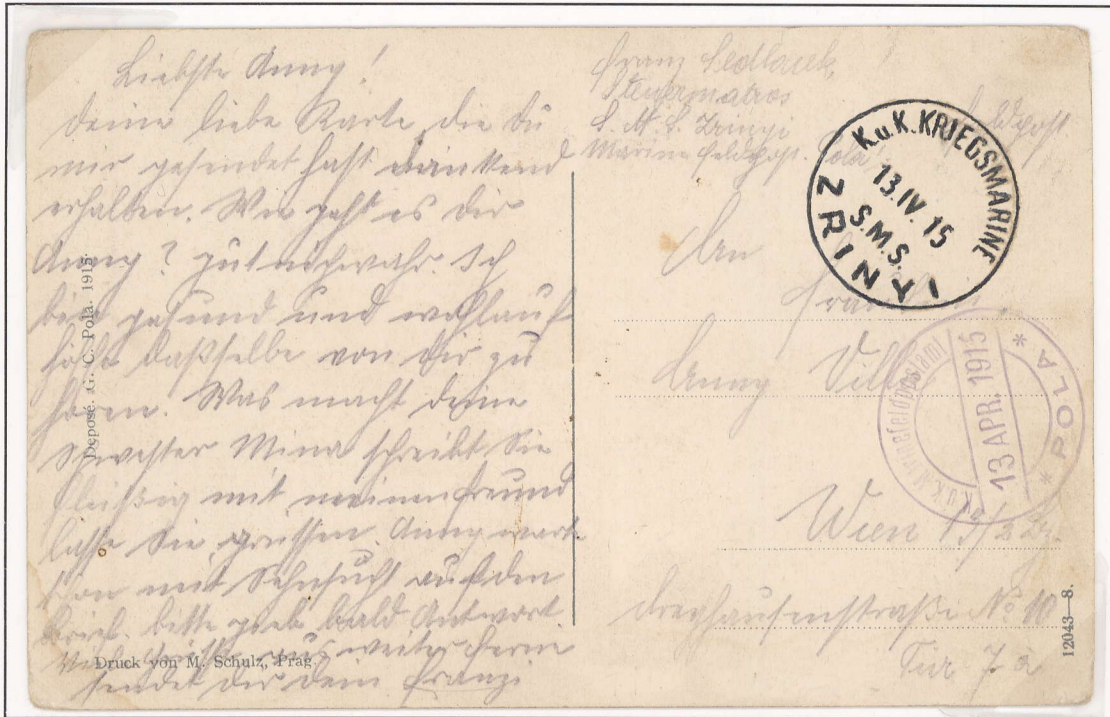 Liebste Anny!
deine liebe Karte die du
mir gesendet hast dankend
erhalten. Wie geht es dir
Anny? gut nichwahr. Ich
bin gesund und wohlauf
hoffe daßselbe von dir zu
hören. Was macht deine
Schwester Mina schreibt Sie
fleißig mit meinen Freund
lasse Sie grüssen. Anny wart
schon mit Sehnsucht auf den
Brief. bitte gieb bald Antwort.
Viele Grüsse aus weiter Ferne
sendet dir dein Franzi
Depose. G. C. Pola. 1915.
Druck von M. Schulz, Prag.
Franz Sedlacek
Steuermatros
S. M. S. Zrinyi
Marinefeldpost. Pola
Feldpost
K.u.K. KRIEGSMARINE
13.IV.15
S.M.S.
ZRINYI
An
Anny
K.u.K. Marinefeldpostamt
13 APR. 1915
* POLA *
Wien 13/2
Dreyhausenstraße No 10
Tür 7 a
12043—8.